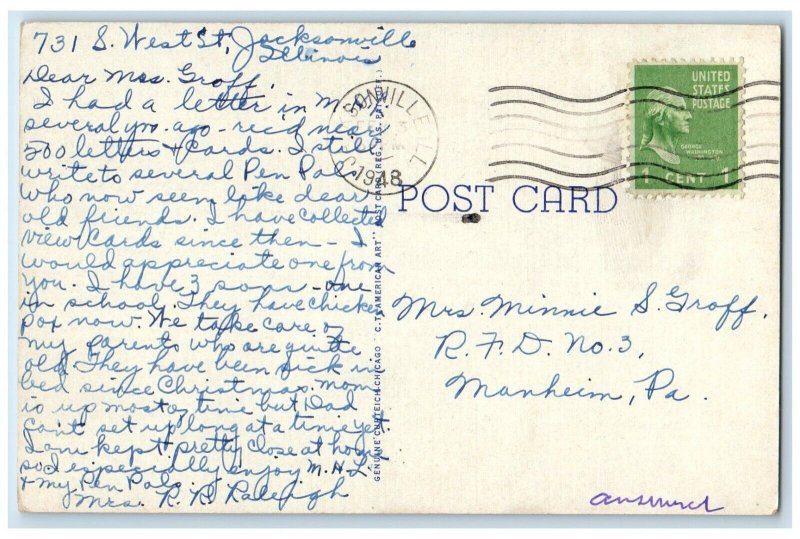 731 S. West St, Jacksonville
Illinois
Dear Mrs. Groff,
I had a letter in M.
several yrs. ago - rec'd near
500 letters & cards. I still
write to several Pen Pals
who now seem like dear
old friends. I have collected
view cards since then - I
would appreciate one from
you. I have 3 sons - one
in school. They have chicken
pox now. We take care of
my parents who are quite
old. They have been sick in
bed since Christmas. Mom
is up most of time but Dad
can't set up long at a time yet.
I am kept pretty close at home
so I especially enjoy M.H.L
& my Pen Pals.
Mrs. R. R. Raleigh
GENUINE CURTEICH-CHICAGO "C.T. AMERICAN ART" POST CARD (REG. U.S. PAT. OFF.)
SONVILLE, ILL
1948
UNITED
STATES
POSTAGE
GEORGE
WASHINGTON
1 CENT 1
POST CARD
Mrs. Minnie S. Groff.
R.F.D. No. 3,
Manheim, Pa.
answered